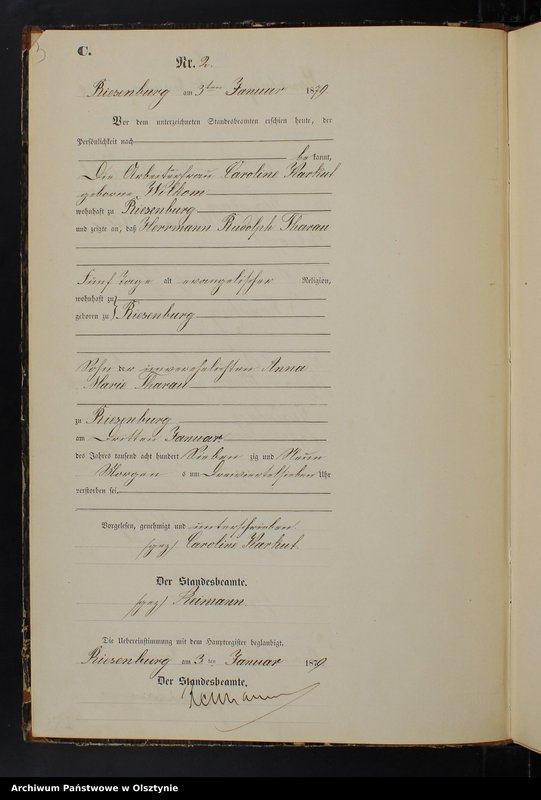 C.
Nr. 2.
Riesenburg am 3ten Januar 1879.
Vor dem unterzeichneten Standesbeamten erschien heute, der
Persönlichkeit nach
be kannt,
Die Arbeiterfrau Caroline Karkut
geborne
wohnhaft zu Riesenburg
und zeigte an, daß Herrmann Rudolph Tharau
Fünf Tage alt evangelischer Religion,
wohnhaft zu
geboren zu } Riesenburg
Sohn der unverehelichten Anna
Marie Tharau
zu Riesenburg
am Dritten Januar
des Jahres tausend acht hundert Sieben zig und Neun
Morgens um Dreiviertelsieben Uhr
verstorben sei.
Vorgelesen, genehmigt und unterschrieben.
(gez) Caroline Karkut.
Der Standesbeamte.
(gez) Reimann.
Die Uebereinstimmung mit dem Hauptregister beglaubigt.
Riesenburg am 3ten Januar 1879.
Der Standesbeamte.
Reimann
Archiwum Państwowe w Olsztynie